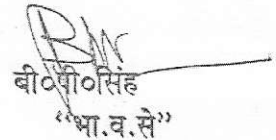 बी०पी०सिंह
“भा.व.से”